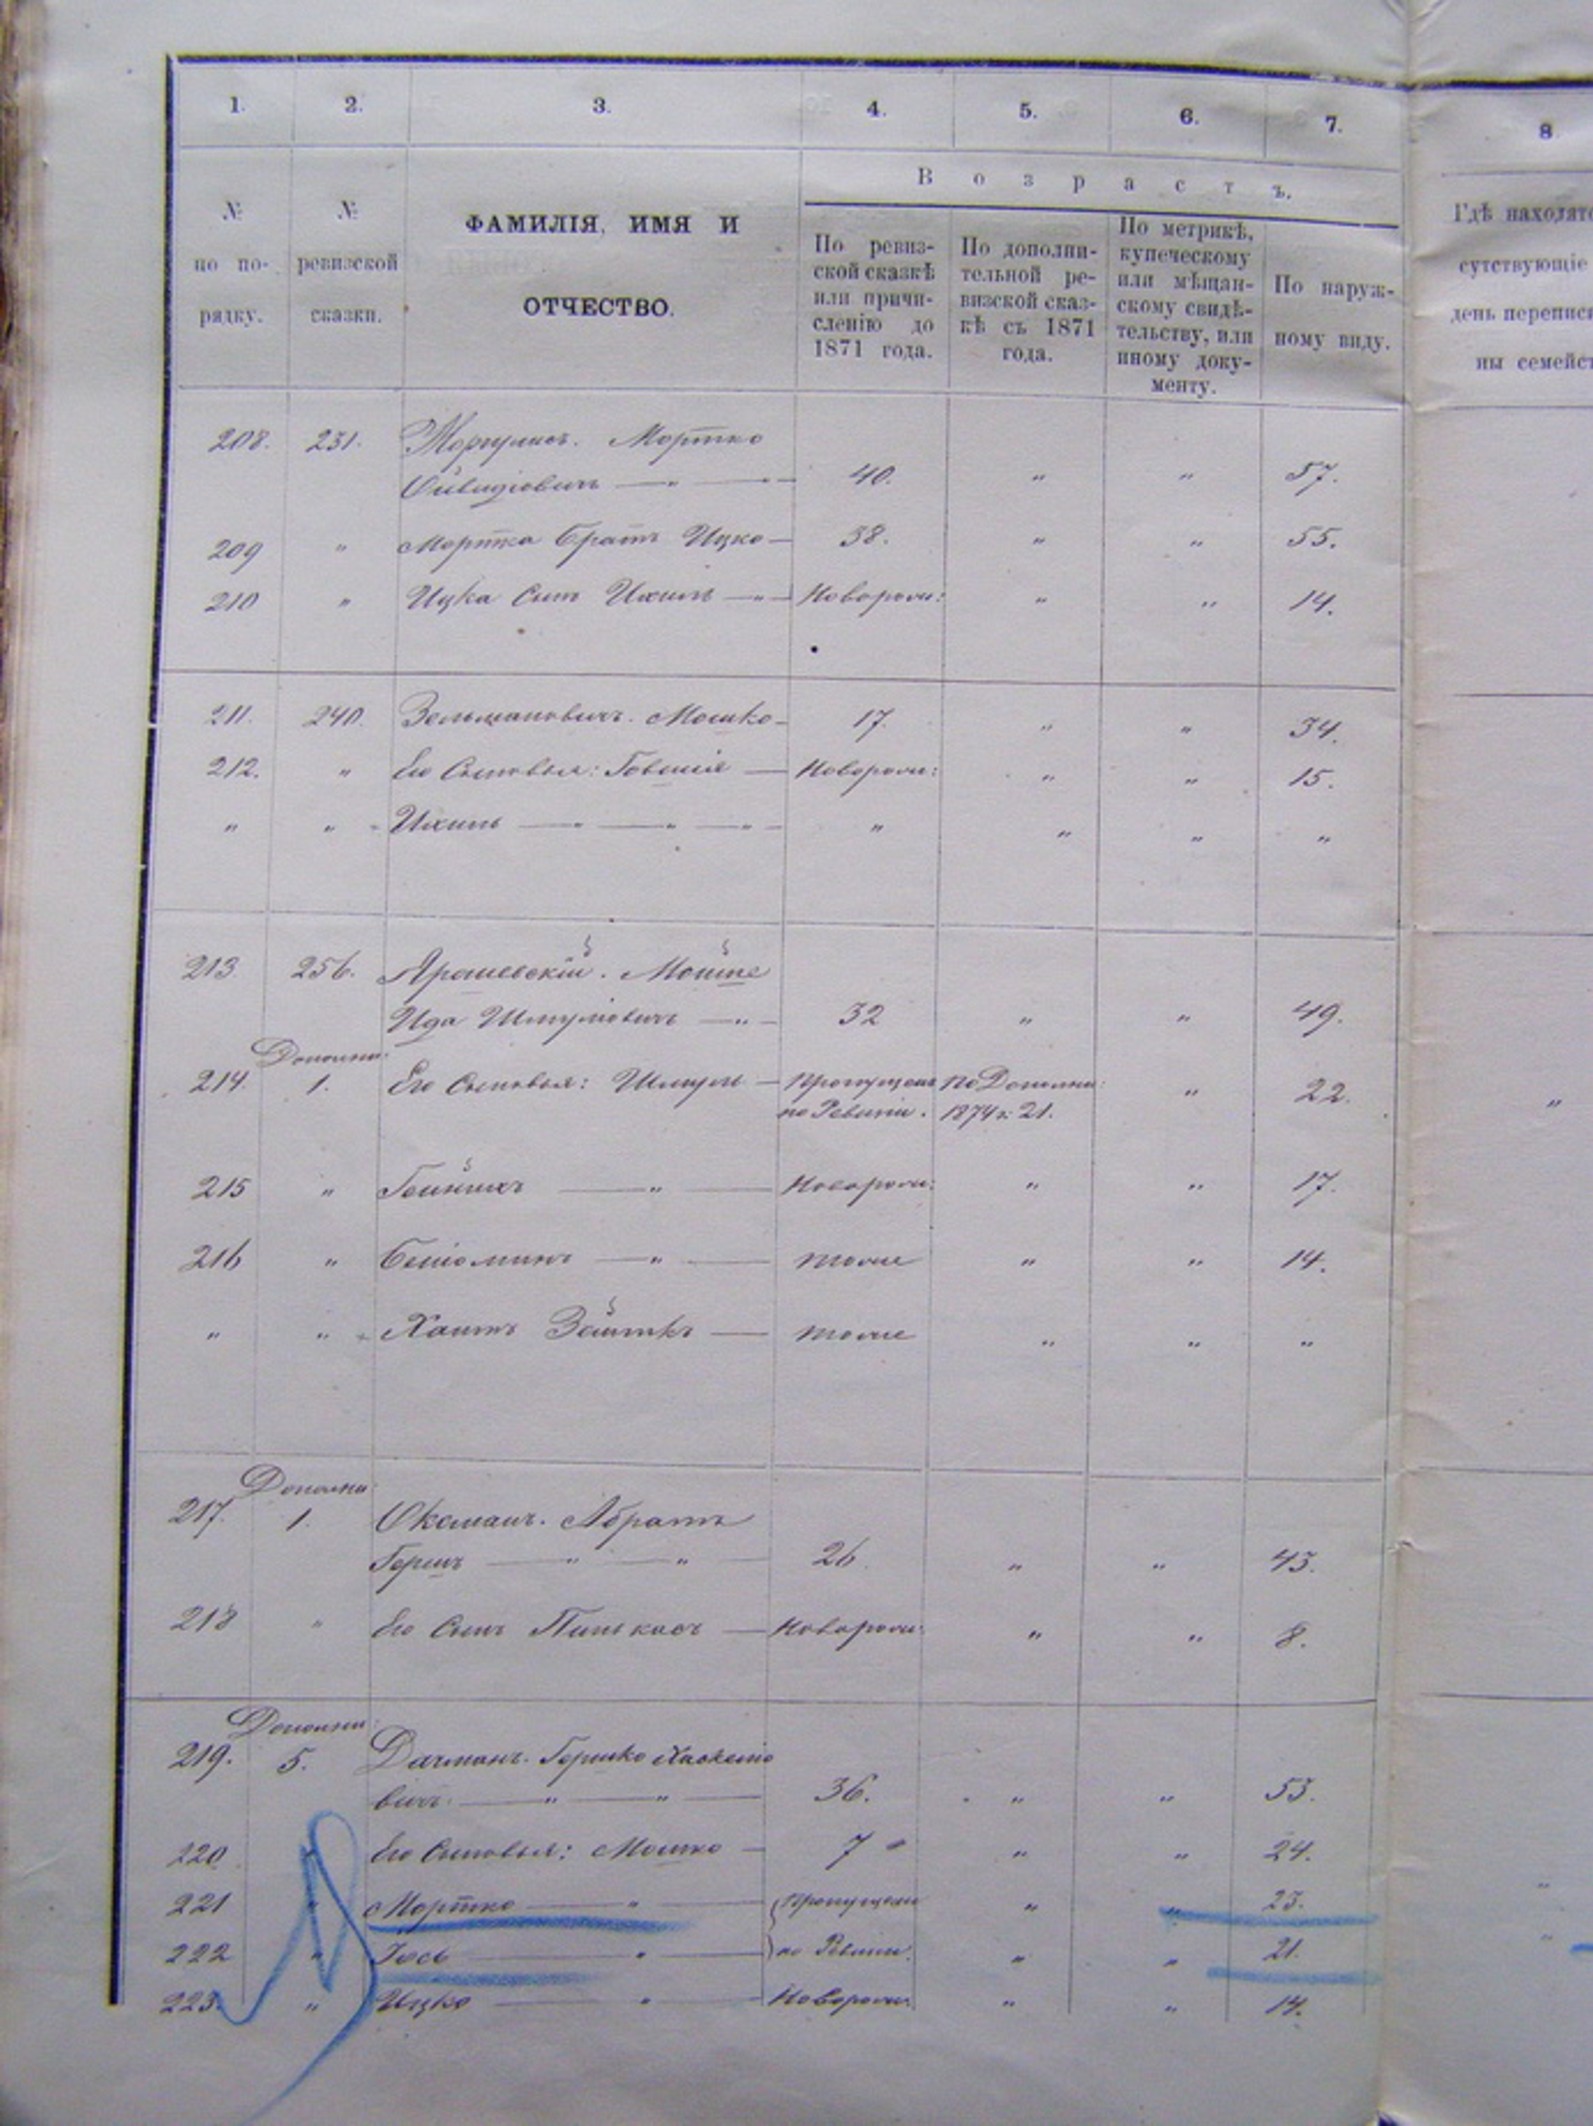 1. 2. 3. 4. 5. 6. 7. 8
№ по по-рядку.
№ ревизской сказки.
ФАМИЛІЯ, ИМЯ И
ОТЧЕСТВО.
Возрастъ.
По ревиз-
ской сказкѣ
или причи-
сленію до
1871 года.
По дополни-
тельной ре-
визской сказ-
кѣ съ 1871
года.
По метрикѣ,
купеческому
или мѣщан-
скому свидѣ-
тельству, или
иному доку-
менту.
По наруж-
ному виду.
Гдѣ находятс
сутствующіе
день переписи
ны семейст
208. 231. Моргулисъ. Мортко
40. " " 57.
209 " Мортка братъ Ицко — 38. " " 55.
210 " Ицка сынъ Ихиль — " — Новорож: " " 14.
211. 240. Зельмановичъ. Мошко — 17. " " 34.
212. " Его Сыновья: Говшія — Новорож: " " 15.
" " Ихиль — " — " — " — " " " "
213 256. Ярошевскій. Мойше
Ида Шмулiовичъ — " — 32 " " 49.
Дополни:
214 1. Его Сыновья: Шмуль — Пропущенъ по Дополни: " 22. "
по Ревизіи. 1874 г. 21.
215 " Гейнихъ — " — Новорож: " " 17.
216 " Беніоминъ — " — тоже " " 14.
" " Хаимъ Зейликъ — тоже " " "
Дополни:
217. 1. Оксманъ. Абрамъ
Гершъ — " — " — 26. " " 43.
218 " Его Сынъ Пинькасъ — Новорож: " " 8.
Дополни:
219. 5. Дачманъ. Гершко Хаскеліо
вичъ. — " — " — 36. " " 53.
220 " Его Сыновья: Мошко — 7 " " 24.
221 " Мортко — " — Пропущены " " 23.
222 " Іось — " — по Ревизіи. " " 21.
223. " Ицко — " — Новорож: " " 14.